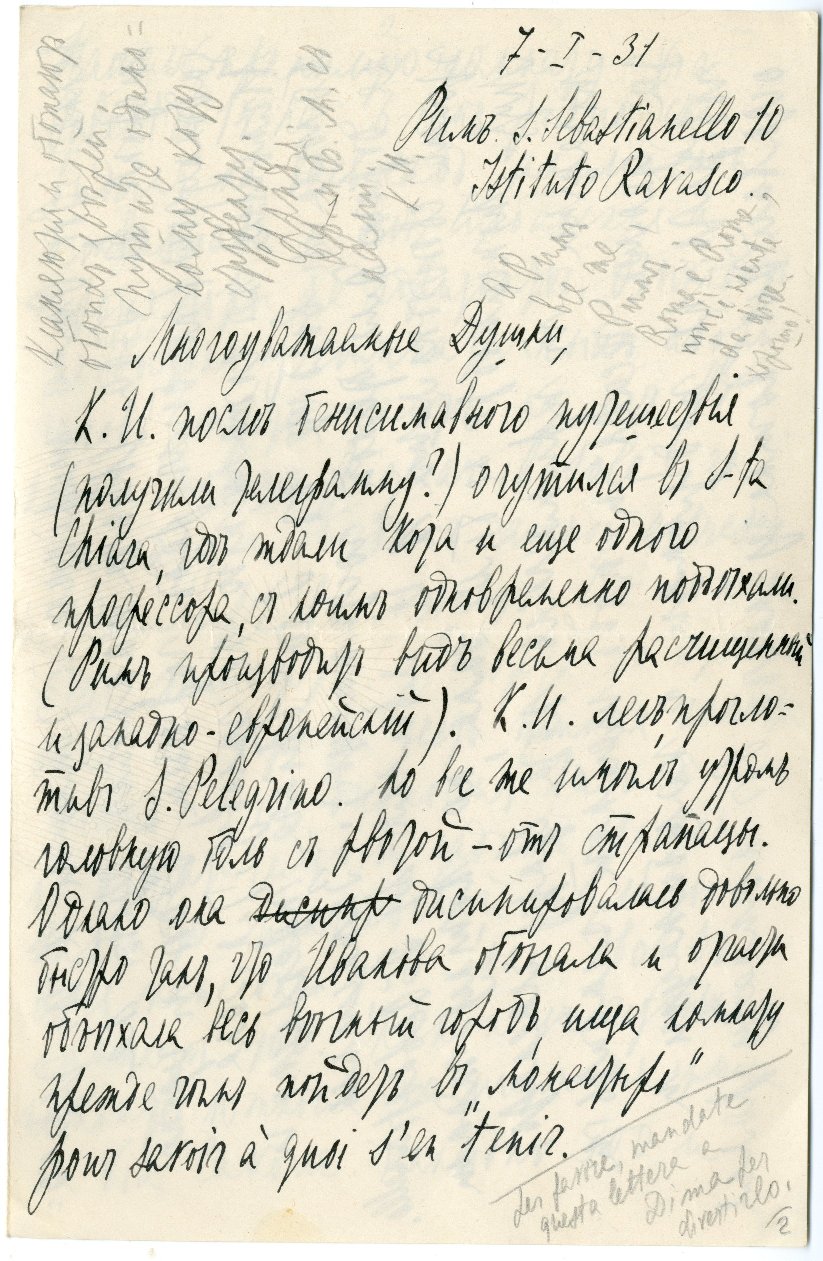 7-I-31
Римъ. S. Sebastianello 10
Istituto Ravasco.
Многоуважаемые Душки,
К. И. послѣ бенисимавного путешествія
(получили телеграмму?) очутился въ S-ta
Chiara, гдѣ ждали Кота и еще одного
профессора, съ коимъ одновременно подъѣхали.
(Римъ производитъ видъ весьма расчищенный
и западно-европейскій). К. И. легъ, прогло-
тивъ S. Pelegrino. Но все же имѣлъ утромъ
головную боль съ рвотой – отъ страпацы.
Однако она дисипировалась довольно
быстро такъ, что Иванова обѣгала и отчасти
объѣхала весь вѣчный городъ, ища комнату
прежде чѣмъ пойдетъ въ „монастырь"
pour savoir à quoi s'en tenir.
Per favore, mandate
questa lettera a
Dima per
divertirlo.
/2
а Римъ
все же,
Римъ.
Roma è Roma,
non c'è niente
da dire.
хорошо!
Кланяюсь и обожаю